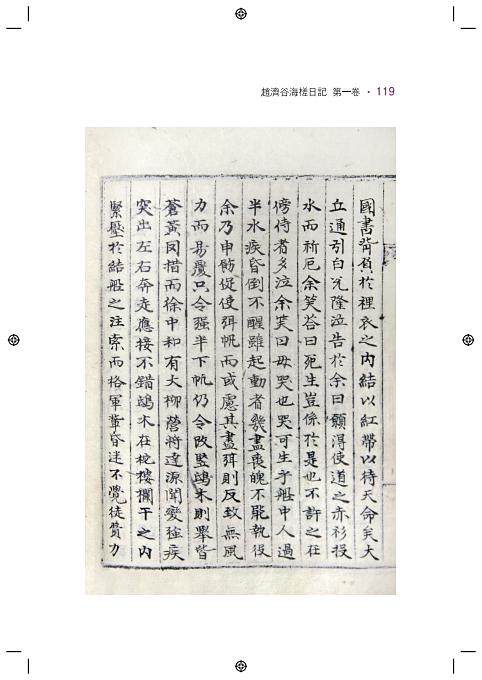 趙濟谷海槎日記 第一卷 · 119
國書背負於裡衣之內結以紅帶以待天命矣大
立通引白允隆泣告於余曰願得使道之赤衫投
水而祈厄余笑答曰死生豈係於是也不許之在
傍侍者多泣余笑曰毋哭也哭可生乎船中人過
半水疾昏倒不醒雖起動者幾盡喪魄不能執役
余乃申飭促使弭帆而或慮其盡弭則反致無風
力而易覆只令强半下帆仍令改竪鴟木則擧皆
蒼黃罔措而徐中和有大柳營將達源聞變强疾
突出左右奔走應接不錯鴟木在柁樓欄干之內
緊壓於結船之注索而格軍輩昏迷不覺徒費力